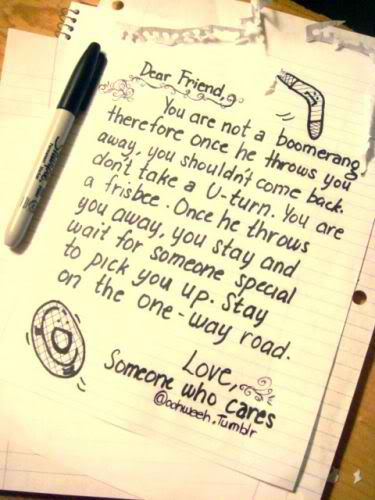 Dear Friend,
You are not a boomerang,
therefore once he throws you
away, you shouldn't come back.
don't take a U-turn. You are
a frisbee. Once he throws
you away, you stay and
wait for someone special
to pick you up. Stay
on the one-way road.
Love,
Someone who cares
@oohweeh.Tumblr
Sharpie